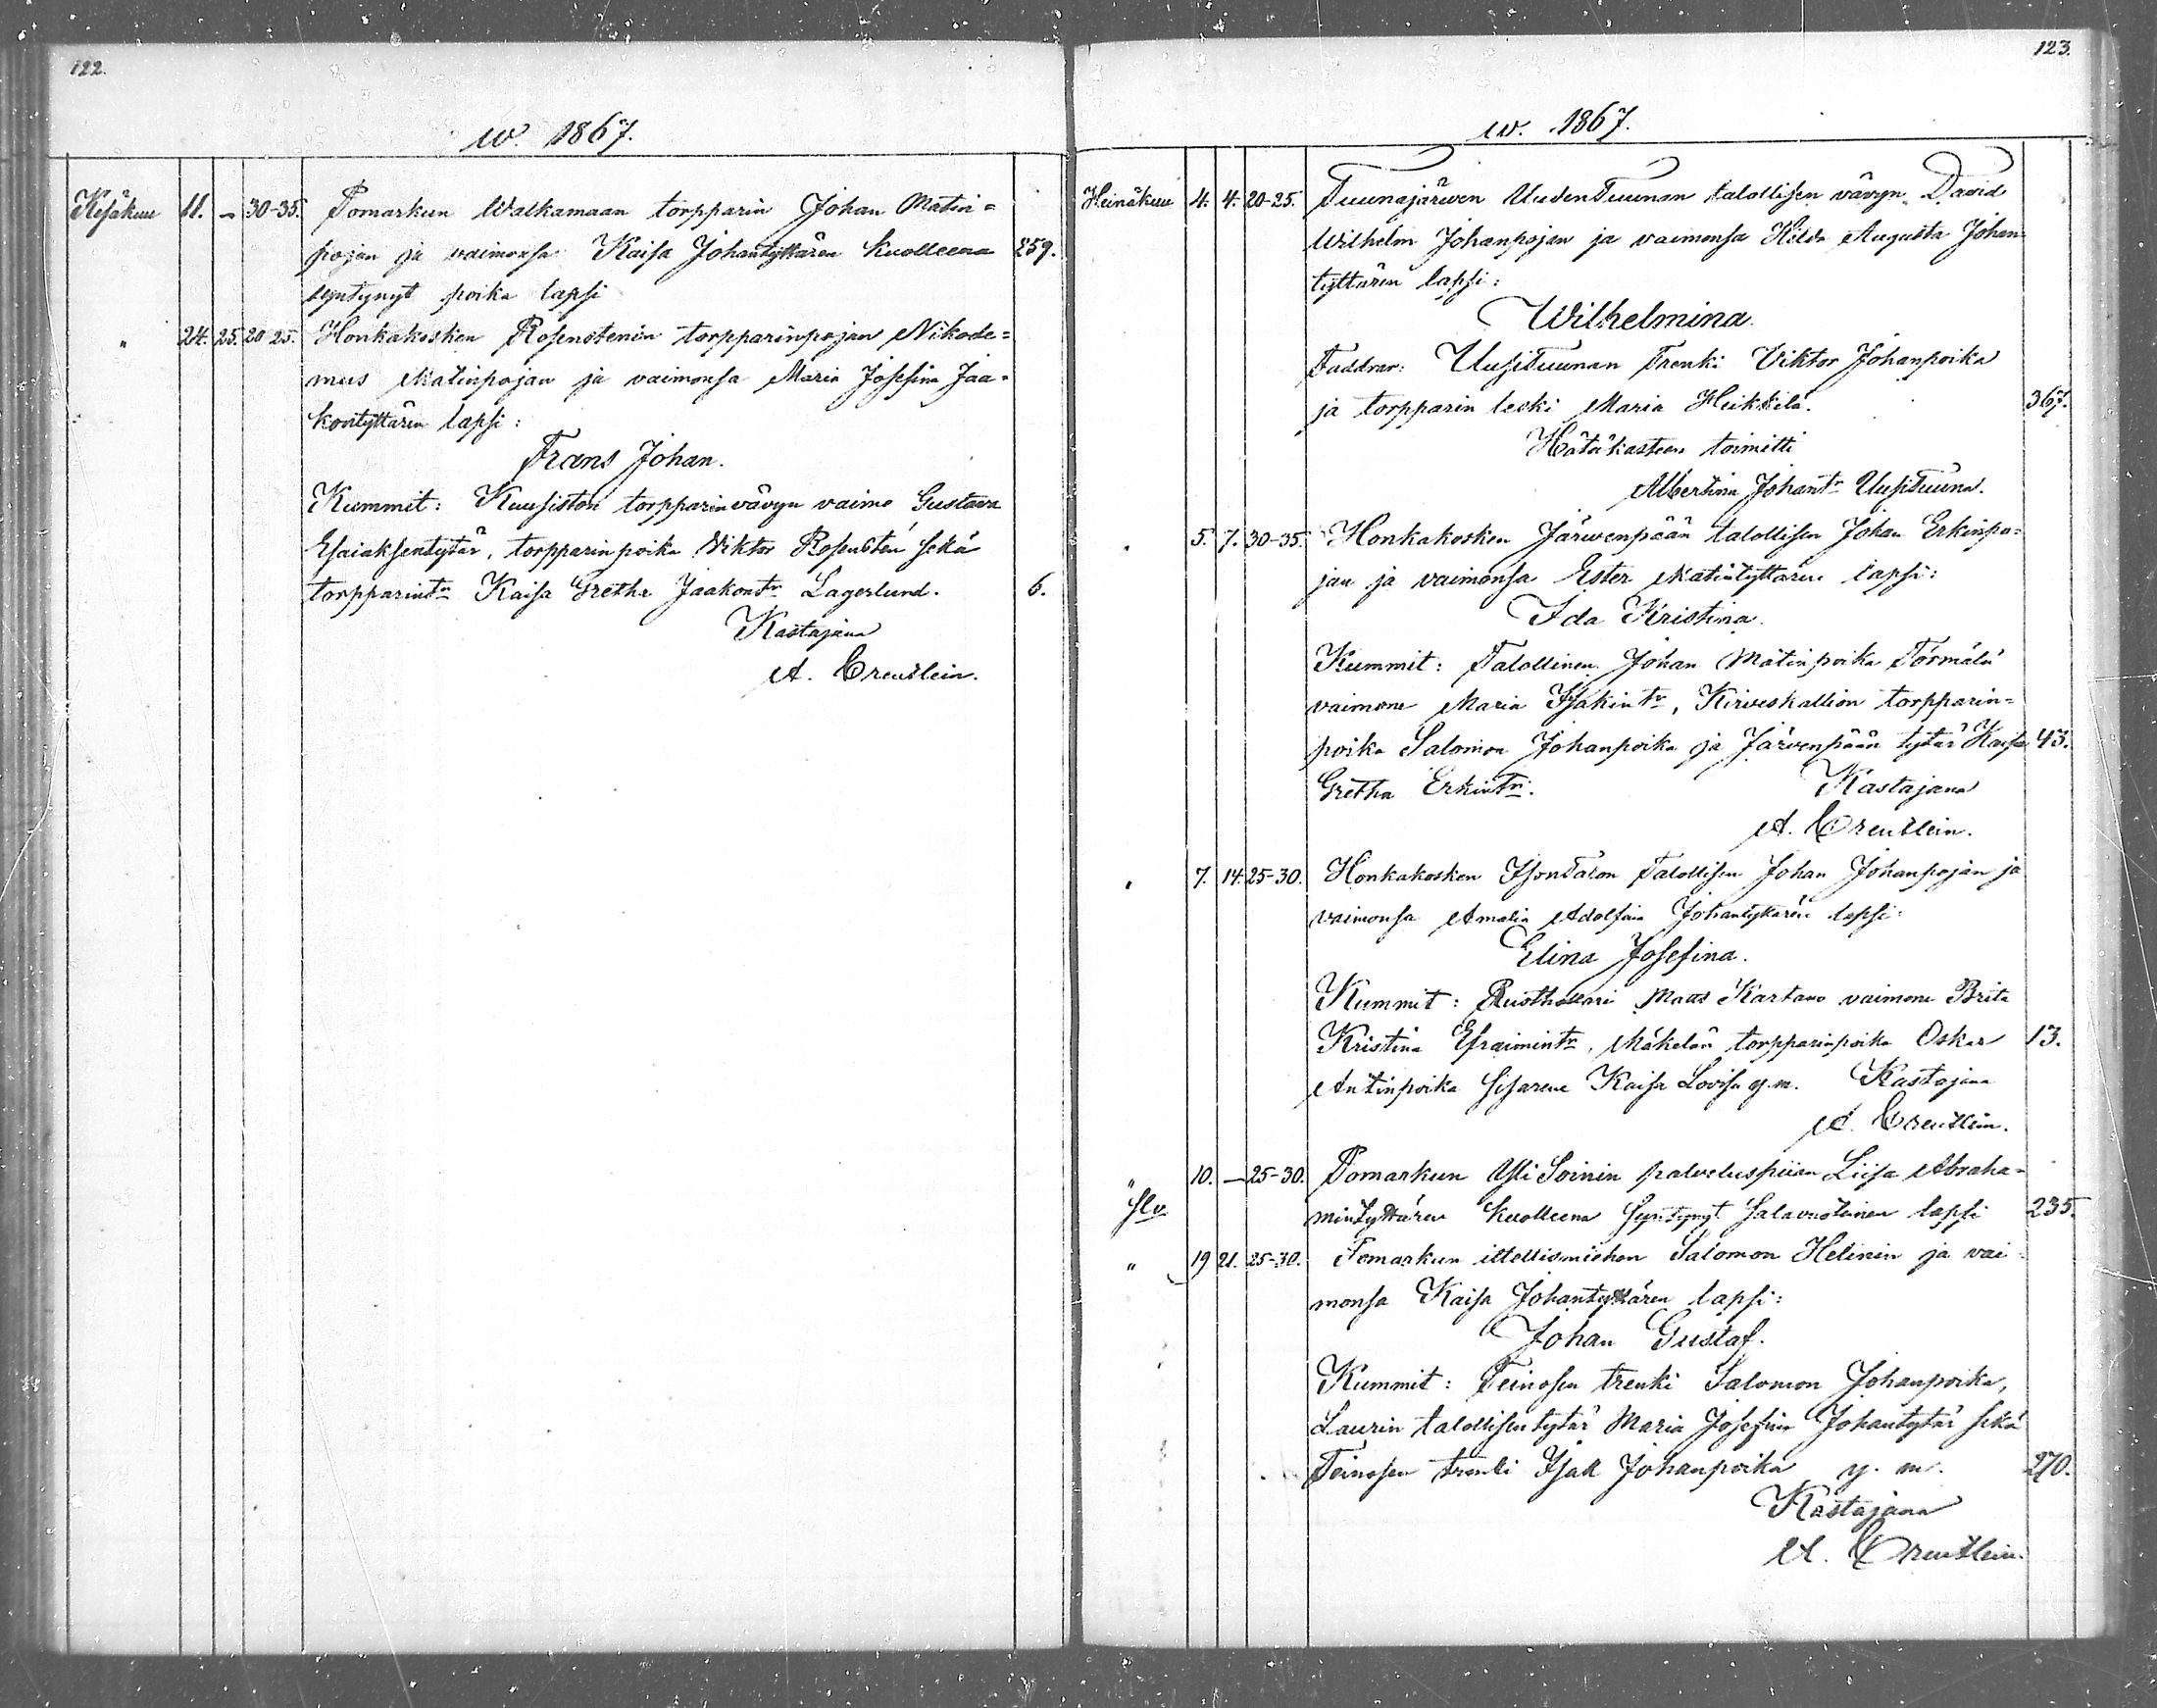 122.
w. 1867.
Kesäkuu 11. — 30-35. Pomarkun Walkamaan torpparin Johan Matin=
pojan ja vaimonsa Kaisa Johantyttären kuolleena 259.
syntynyt poika lapsi
" 24. 25. 20-25. Honkakosken Rosenstenin torpparinpojan Nikode=
mus Matinpojan ja vaimonsa Maria Josefina Jaa=
kontyttären lapsi:
Frans Johan.
Kummit: Kuusiston torpparinvävyn vaimo Gustava
Esaiaksentytär, torpparinpoika Viktor Rosenstén sekä
torpparintr Kaisa Gretha Jaakontr Lagerlund. 6.
Kastajana
A. Creutlein.
123.
w. 1867.
Heinäkuu 4. 4. 20-25. Tuunajärwen UudenTuunan talollisen vävyn David
Wilhelm Johanpojan ja vaimonsa Hilda Augusta Johan
tyttären lapsi:
Wilhelmina.
Faddrar: UusiTuunan Trenki Viktor Johanpoika
ja torpparin leski Maria Heikkilä. 367.
Hätäkasteen toimitti
Albertina Johantr UusiTuuna.
" 5. 7. 30-35. Honkakosken Järwenpään talollisen Johan Erkinpo=
jan ja vaimonsa Ester Matintyttären lapsi:
Ida Kristina.
Kummit: Talollinen Johan Matinpoika Törmälä
vaimone Maria Isakintr, Kirveskallion torpparin=
poika Salomon Johanpoika ja Järvenpään tytär Kaisa 43.
Gretha Erkintr. Kastajana
A. Creutlein.
" 7. 14. 25-30. Honkakosken Talollisen Johan Johanpojan ja
vaimonsa Amalia Adolfina Johantyttären lapsi:
Elina Josefina.
Kummit: Rusthollari Matts Kartano vaimone Brita
Kristina Efraimintr, Mäkelän torpparinpoika Oskar 13.
Antinpoika sisarene Kaisa Lovisa y.m. Kastajana
A. Creutlein.
" 10. — 25-30. Pomarkun Yli Soinin palveluspiian Liisa Abraha=
mintyttären kuolleena syntynyt salavuoteinen lapsi 235.
" 19 21. 25-30. Pomarkun itellismiehen Salomon Helinin ja vai=
monsa Kaisa Johantyttären lapsi:
Johan Gustaf.
Kummit: Teinosen trenki Salomon Johanpoika,
Laurin talollisentytär Maria Josefina Johantytär sekä
Teinosen trenki Isak Johanpoika y. m. 270.
Kastajana
A. Creutlein.